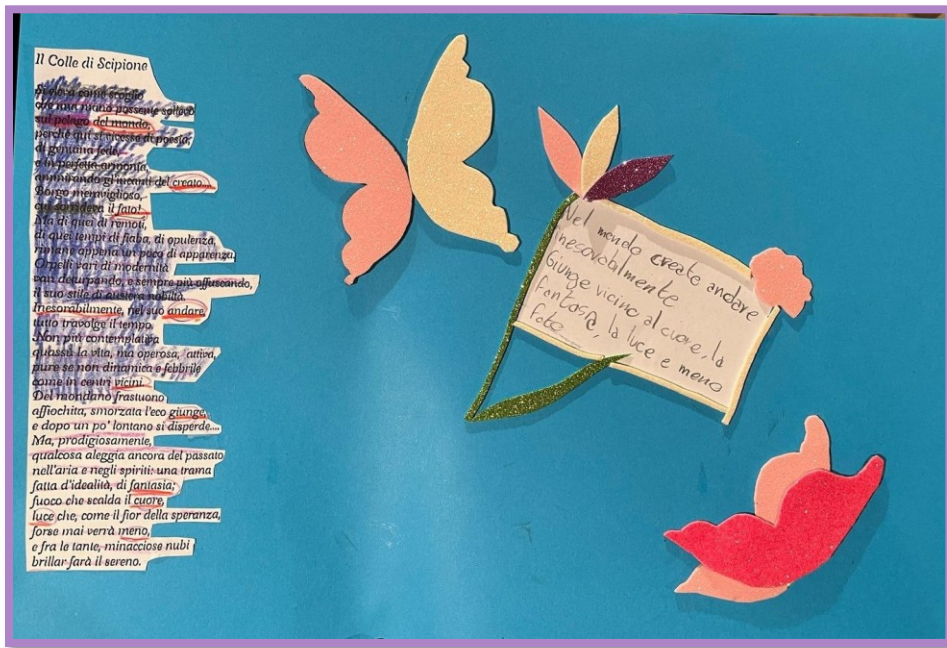 Il Colle di Scipione
Si eleva come scoglio
che una mano possente sollevò
sul pelago del mondo,
perchè qui si vivesse di poesia,
di genuina fede,
e in perfetta armonia,
ammirando gl'incanti del creato....
Borgo meraviglioso,
cui sorrideva il fato!
Ma di quei dì remoti,
di quei tempi di fiaba, di opulenza,
rimane appena un poco di apparenza,
Orpelli vari di modernità
van deturpando, e sempre più offuscando,
il suo stile di austera nobiltà.
Inesorabilmente, nel suo andare,
tutto travolge il tempo.
Non più contemplativa
quassù la vita, ma operosa, attiva,
pure se non dinamica e febbrile
come in centri vicini.
Del mondano frastuono
affiochita, smorzata l'eco giunge,
e dopo un po' lontano si disperde....
Ma, prodigiosamente,
qualcosa aleggia ancora del passato
nell'aria e negli spiriti: una trama
fatta d'idealità, di fantasia;
fuoco che scalda il cuore,
luce che, come il fior della speranza,
forse mai verrà meno,
e fra le tante, minacciose nubi
brillar farà il sereno.
Nel mondo create andare
Inesorabilmente
Giunge vicino al cuore, la
fantasia, la luce e meno
fato